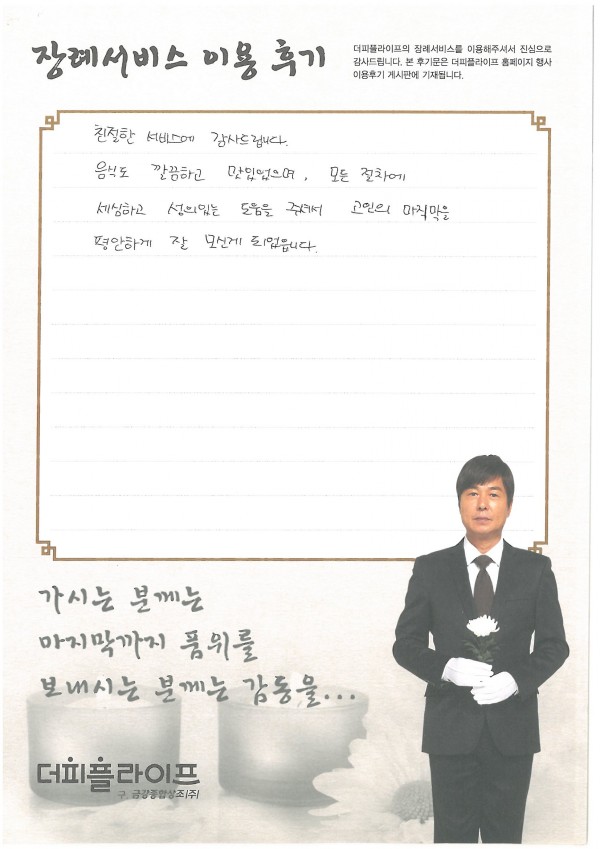 장례서비스 이용 후기
더피플라이프의 장례서비스를 이용해주셔서 진심으로
감사드립니다. 본 후기문은 더피플라이프 홈페이지 행사
이용후기 게시판에 기재됩니다.
친절한 서비스에 감사드립니다.
음식도 깔끔하고 맛있었으며, 모든 절차에
세심하고 성의있는 도움을 주셔서 고인의 마지막을
평안하게 잘 모신게 되었습니다.
가시는 분께는
마지막까지 품위를
보내시는 분께는 감동을...
더피플라이프
구. 금강종합상조(주)